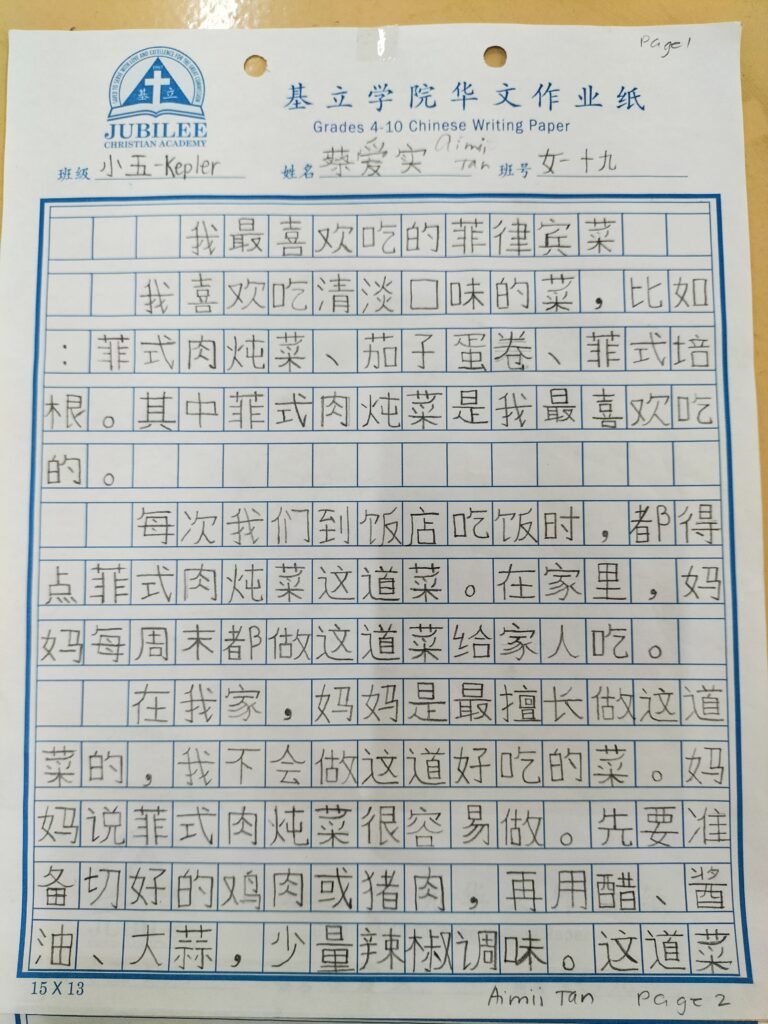 Page 1
基立
JUBILEE
CHRISTIAN ACADEMY
基立学院华文作业纸
Grades 4-10 Chinese Writing Paper
班级 小五-Kepler 姓名 蔡爱实 Aimii Tan 班号 女-十九
我最喜欢吃的菲律宾菜
我喜欢吃清淡口味的菜，比如
：菲式肉炖菜、茄子蛋卷、菲式培
根。其中菲式肉炖菜是我最喜欢吃
的。
每次我们到饭店吃饭时，都得
点菲式肉炖菜这道菜。在家里，妈
妈每周末都做这道菜给家人吃。
在我家，妈妈是最擅长做这道
菜的，我不会做这道好吃的菜。妈
妈说菲式肉炖菜很容易做。先要准
备切好的鸡肉或猪肉，再用醋、酱
油、大蒜，少量辣椒调味。这道菜
15 X 13
Aimii Tan Page 2